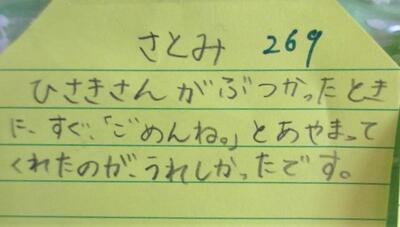 さとみ 269
ひさきさんがぶつかったとき
に、すぐ、「ごめんね。」とあやまって
くれたのが、うれしかったです。